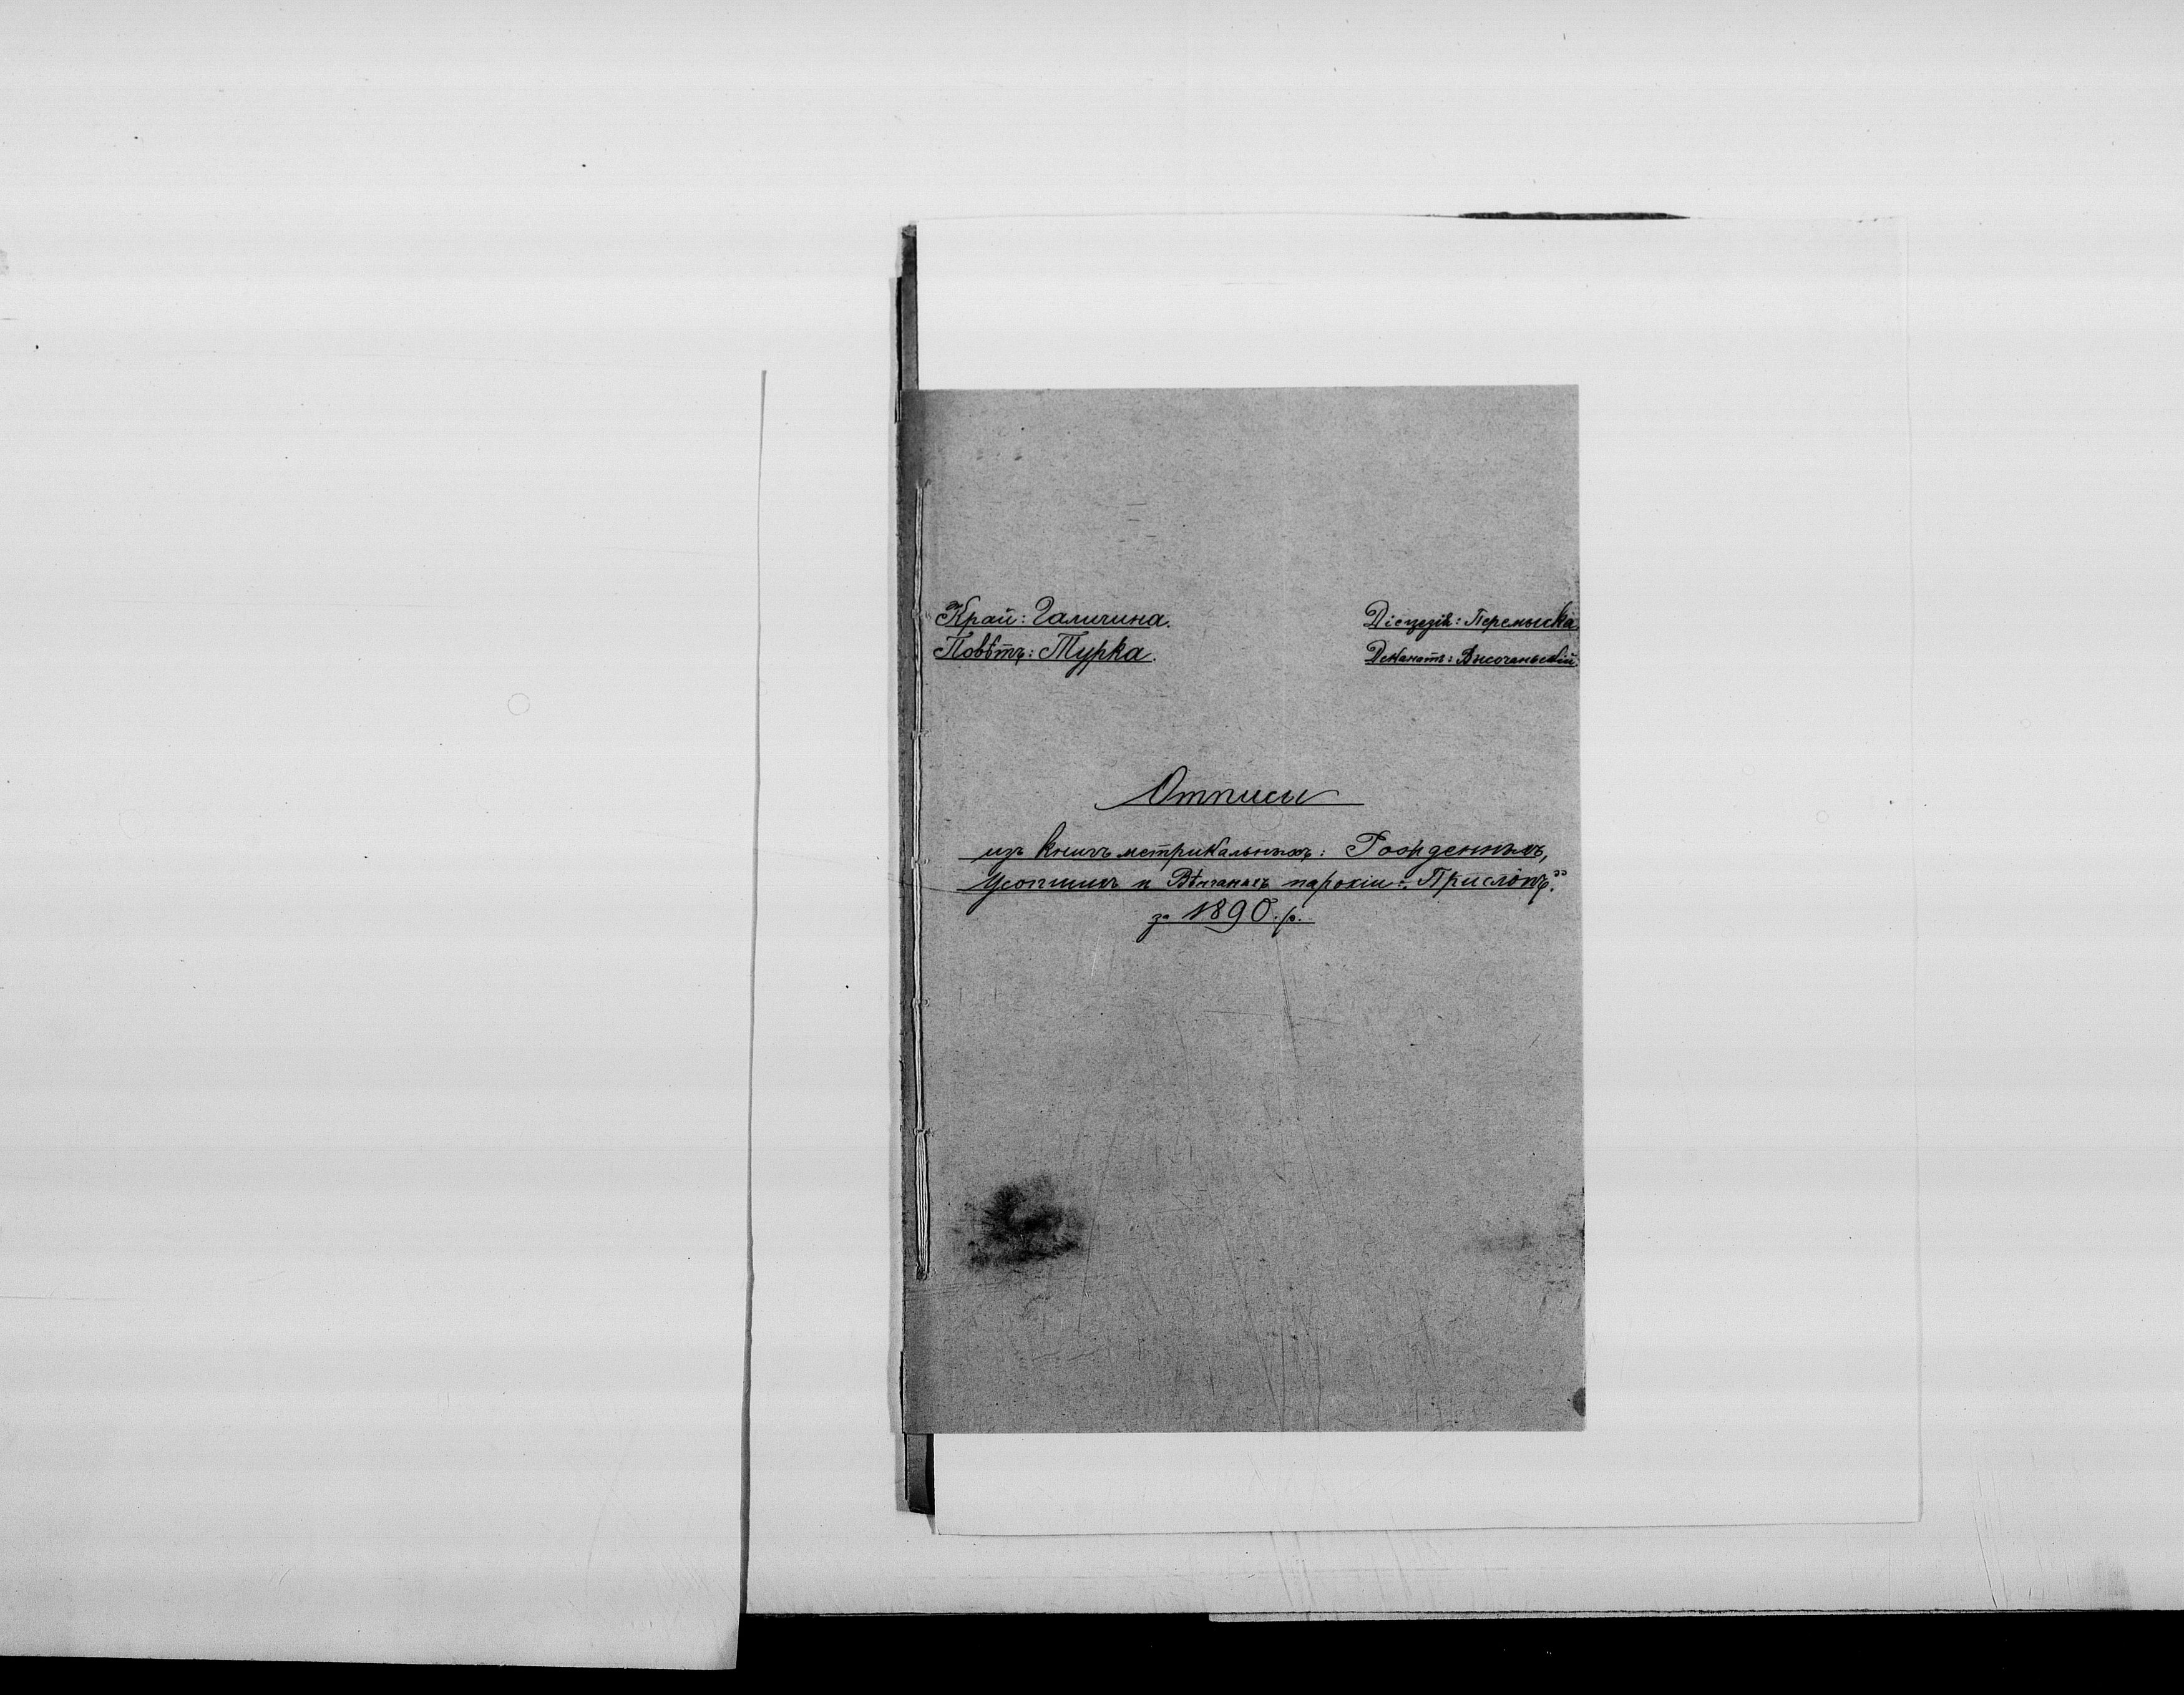 Край: Галичина.
Повѣтъ: Турка.
Діецезія: Перемыска
Деканатъ: Высочаньскій.
Отписы
изъ книгъ метрикальныхъ: Рожденныхъ,
Усопшихъ и Вѣнчаныхъ парохіи: „Прислôпъ“
за 1890. р.